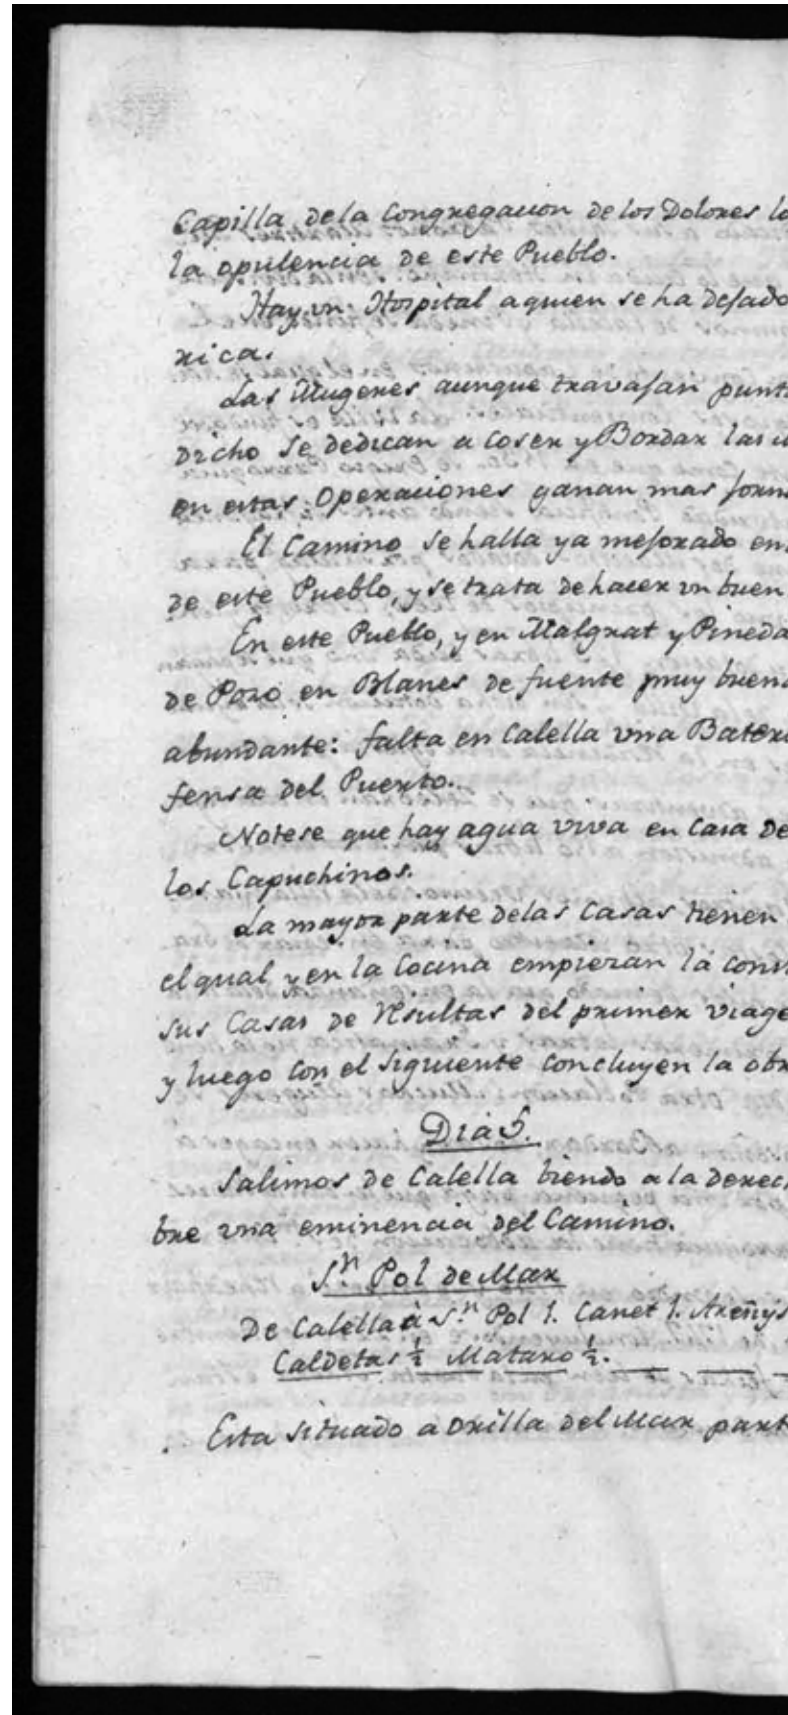 Capilla dela Congregacion de los Dolores lo
la opulencia de este Pueblo.
Hay vn Hospital aquien se ha dejado
rica.
Las Mugeres aunque travajan punt
dicho se dedican a Coser y Bordar las
en estas Operaciones ganan mas forn
El Camino se halla ya mejorado en
de este Pueblo, y se trata de hacer vn buen
En este Pueblo, y en Malgrat y Pineda
de Pozo en Blanes de fuente muy buena
abundante: falta en Calella vna Bater
fensa del Puerto.
Notese que hay agua viva en Casa de
los Capuchinos.
La mayor parte delas Casas tienen
el qual y en la Cocina empiezan la cons
sus Casas de Resultas del primer viage
y luego con el siguiente concluyen la obr
Dia 5.
Salimos de Calella biendo a la derec
bre vna eminencia del Camino.
S.n Pol de Mar
De Calella à S.n Pol 1. Canet 1. Areñys
Caldetas ½ Mataro ½.
Esta situado a orilla del Mar part